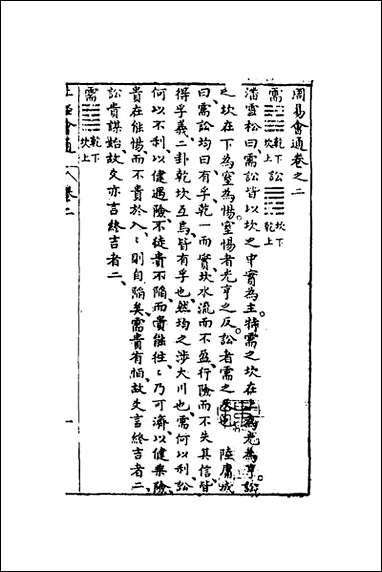 周易會通卷之二
需 乾下坎上 訟 坎下乾上
潘雪松曰需訟皆以坎之中實為主特需之坎在上為光為亨訟
之坎在下為窒為惕窒惕者光亨之反訟者需之 陸庸成
曰需訟均曰有孚乾一而實坎水流而不盈行險而不失其信皆
得孚義二卦乾坎互焉皆有孚也然均之涉大川也需何以利訟
何以不利以健遇險不徒貴不陷而貴能往〻乃可濟以健乘險
貴在能惕而不貴於入〻則自陷矣需貴有恒故爻言終吉者二
訟貴謀始故爻亦言終吉者二
需 乾下坎上
會通 卷二 一